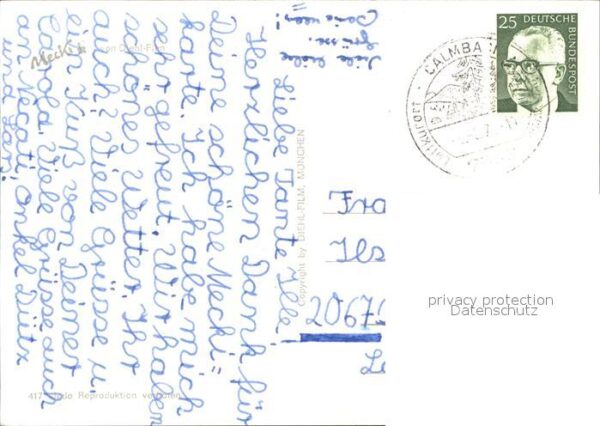 Liebe Tante Ille!
Herzlichen Dank für
Deine schöne Mecki=
karte. Ich habe mich
sehr gefreut. Wir haben
schönes Wetter. Ihr
auch? Viele Grüsse u.
ein Kuß von Deiner
Carola. Viele Grüsse auch
an Mecati, Onkel Dütz
und
Viele liebe
Grüsse
Mecki
von Diehl-Film
Copyright by DIEHL-FILM, MÜNCHEN
417 Reproduktion verboten
25 DEUTSCHE BUNDESPOST
CALMBA
Fra
Ils
2067
privacy protection
Datenschutz